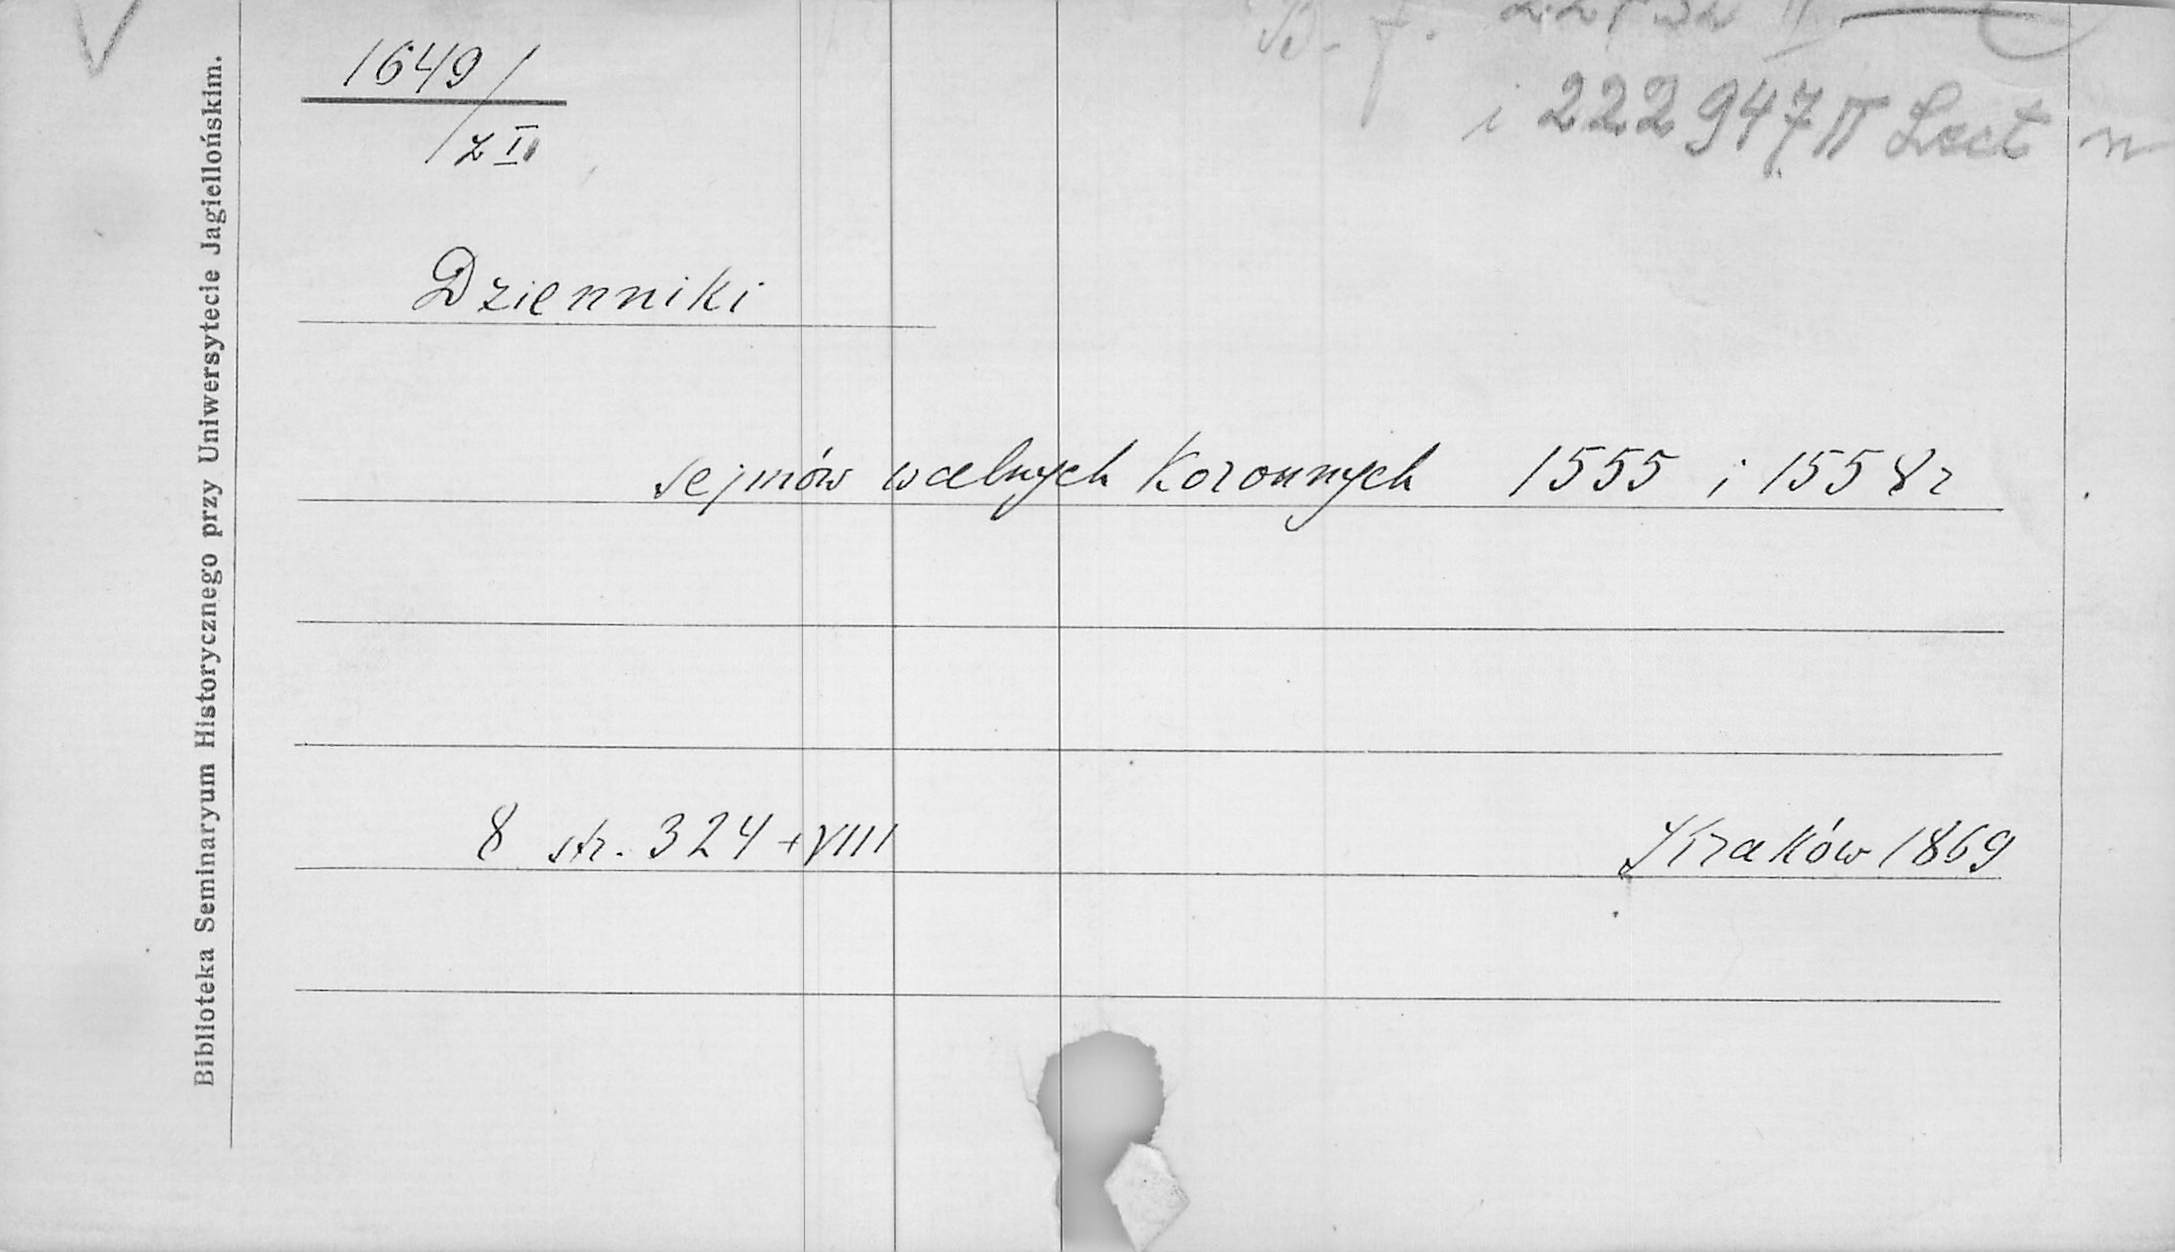 1649/
z II
i 222947 II Lect n
Dzienniki
sejmów walnych Koronnych 1555 i 1558 r
8 str. 324 + VIII Kraków 1869
Biblioteka Seminaryum Historycznego przy Uniwersytecie Jagiellońskim.